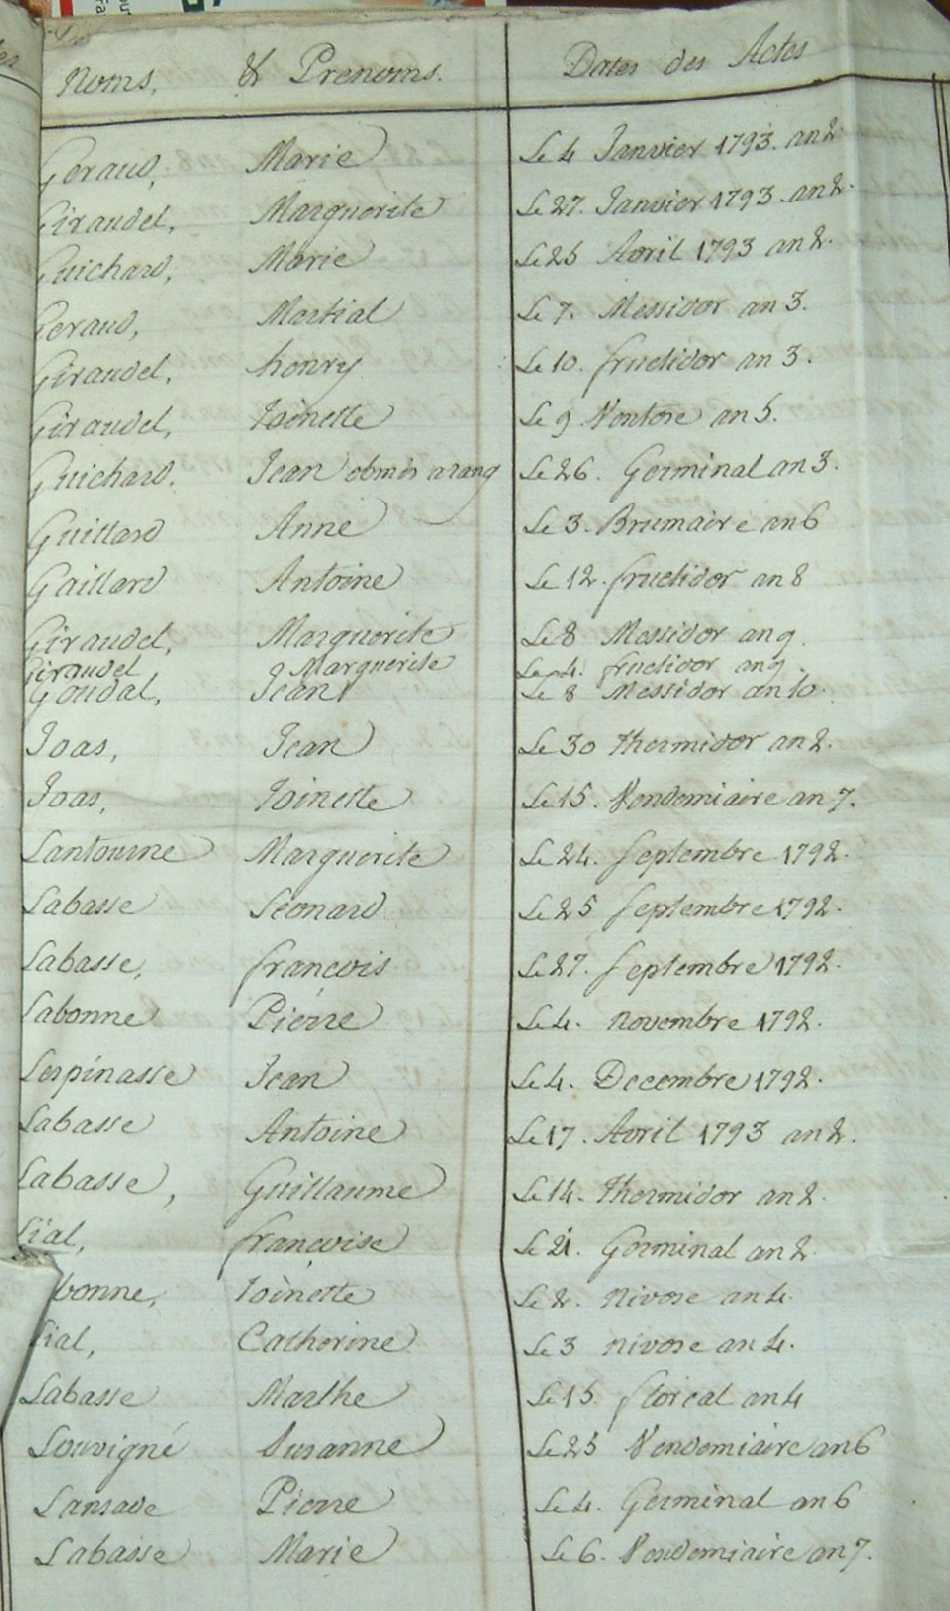 Noms, & Prenoms. Dates des Actes
Geraud, Marie Le 4 Janvier 1793. an 2.
Giraudel, Marguerite Le 27. Janvier 1793. an 2.
Guichard, Marie Le 25 Avril 1793 an 2.
Geraud, Martial Le 7. Messidor an 3.
Giraudel, henry Le 10. fructidor an 3.
Giraudel, Toinette Le 9 Ventose an 5.
Guichard. Jean obmis a rang Le 26. Germinal an 3.
Guillard Anne Le 3. Brumaire an 6
Gaillard Antoine Le 12. fructidor an 8
Giraudel, Marguerite Le 8 Messidor an 9.
Giraudel Marguerite Le 4. fructidor an 9.
Goudal, Jean Le 8 Messidor an 10.
Joas, Jean Le 30 thermidor an 2.
Joas, Toinette Le 15. Vendemiaire an 7.
Lantourne Marguerite Le 24. septembre 1792.
Labasse Léonard Le 25 septembre 1792.
Labasse, françois Le 27. septembre 1792.
Labonne Pierre Le 4. novembre 1792.
Lespinasse Jean Le 4. Decembre 1792.
Labasse Antoine Le 17. Avril 1793 an 2.
Labasse, Guillaume Le 14. thermidor an 2.
Lial, françoise Le 21. Germinal an 2.
bonne, Toinette Le 2. nivose an 4.
Lial, Catherine Le 3 nivose an 4.
Labasse Marthe Le 15. floreal an 4
Louvigné Susanne Le 25 Vendemiaire an 6
Lansade Pierre Le 4. Germinal an 6
Labasse Marie Le 6. Vendemiaire an 7.